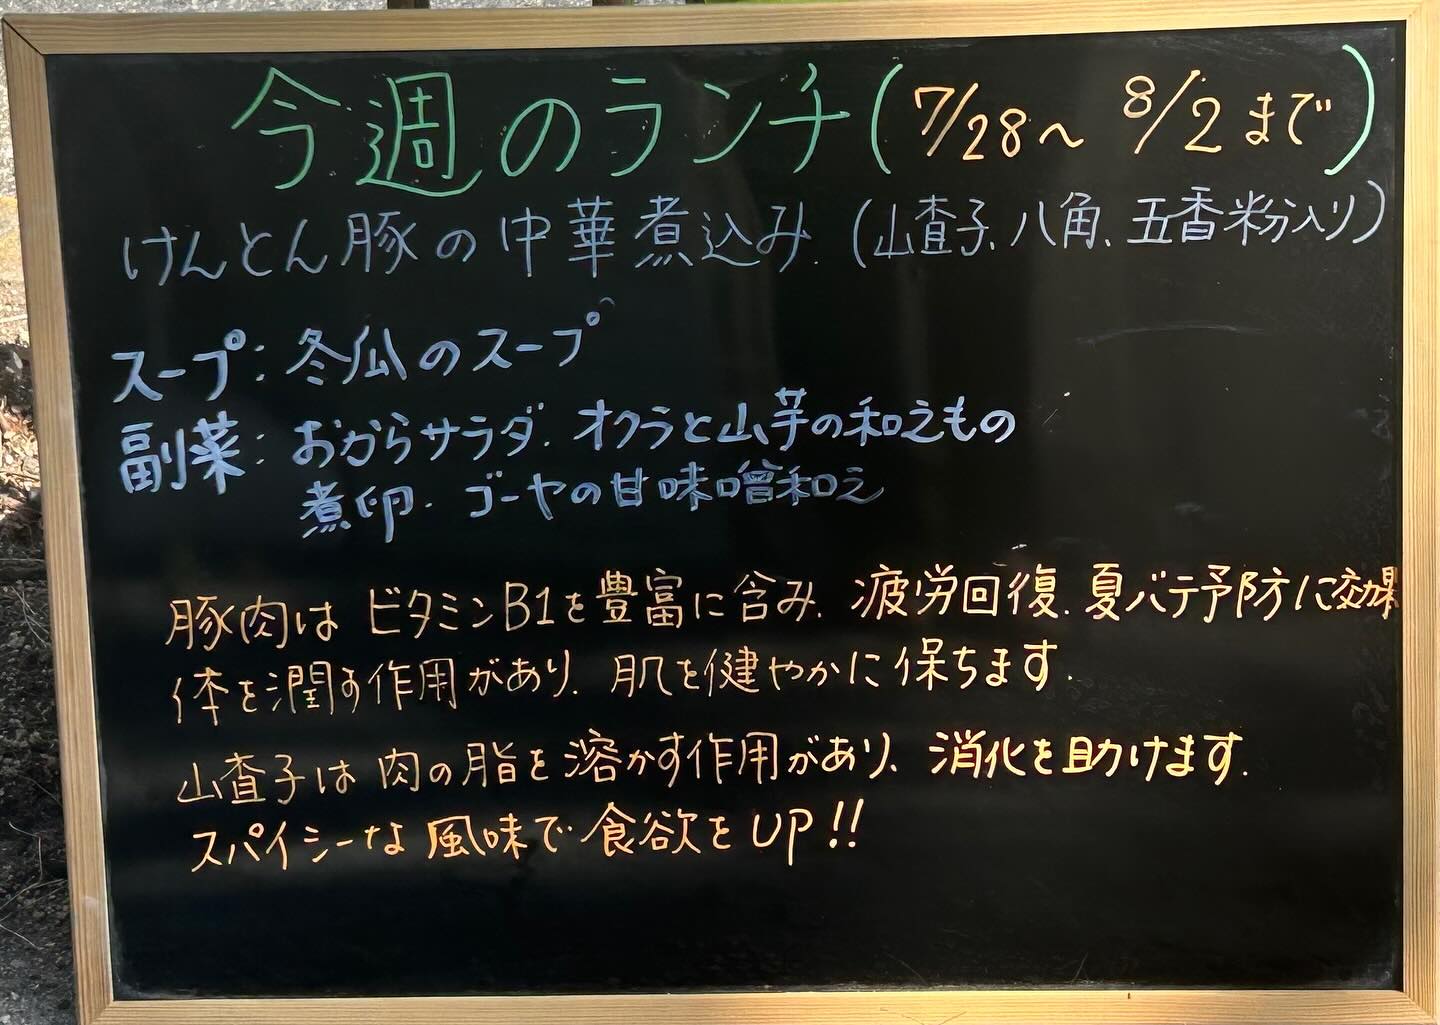 今週のランチ(7/28〜 8/2まで)
けんとん豚の中華煮込み.(山査子、八角、五香粉入り)
スープ:冬瓜のスープ
副菜:おからサラダ. オクラと山芋の和えもの
煮卵. ゴーヤの甘味噌和え
豚肉は ビタミンB1を豊富に含み. 疲労回復. 夏バテ予防に効果
体を潤す作用があり. 肌を健やかに保ちます.
山査子は 肉の脂を溶かす作用があり、消化を助けます.
スパイシーな風味で食欲をUP!!